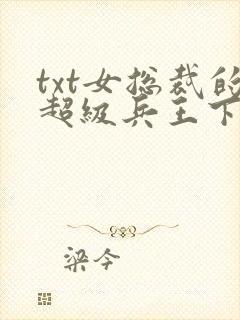 txt女总裁的
超级兵王下
梁今